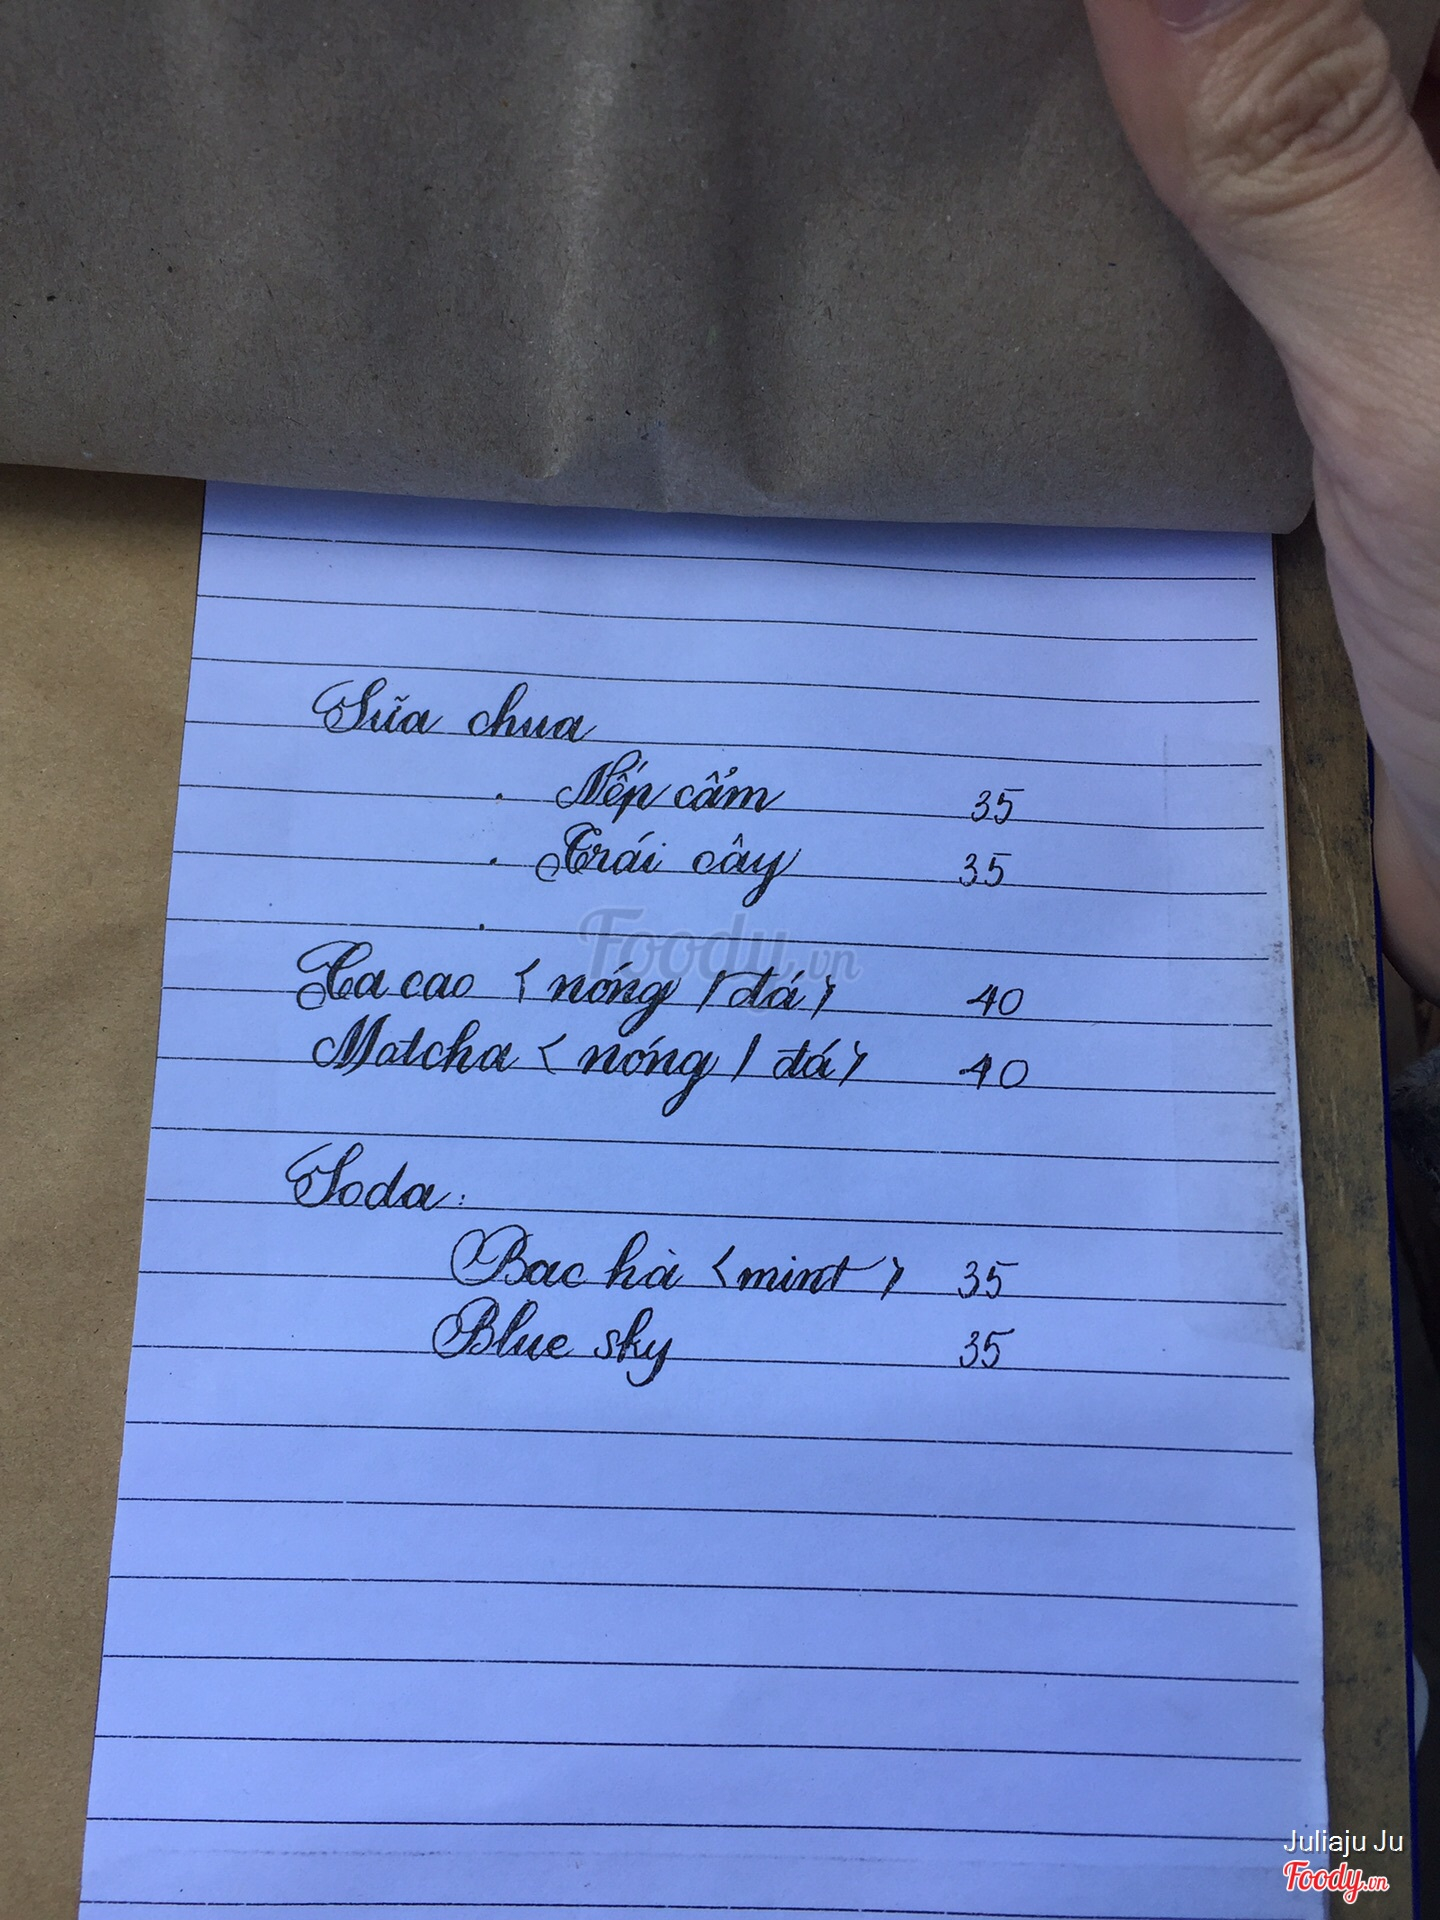 Sữa chua
. Nếp cẩm 35
. Trái cây 35
.
Ca cao < nóng / đá > 40
Matcha < nóng / đá > 40
Soda :
Bac hà < mint > 35
Blue sky 35
Foody.vn
Juliaju Ju
Foody.vn